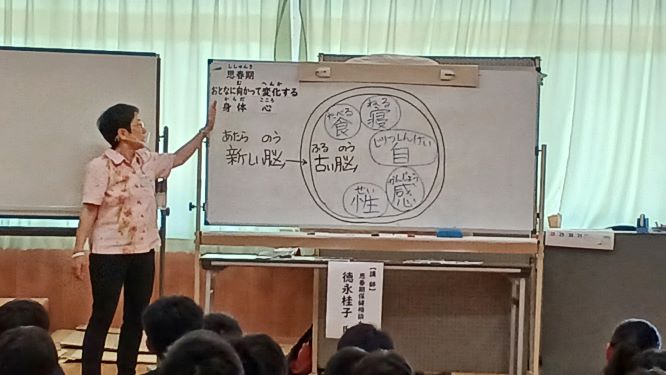 ししゅんき
思春期
む へんか
おとなに向かって変化する
からだ こころ
身体 心
あたら のう
新しい脳
ふる のう
古い脳
たべる
食
ねる
寝
じりつしんけい
自
せい
性
かんじょう
感
【講師】
思春期保健相談
徳永桂子 氏